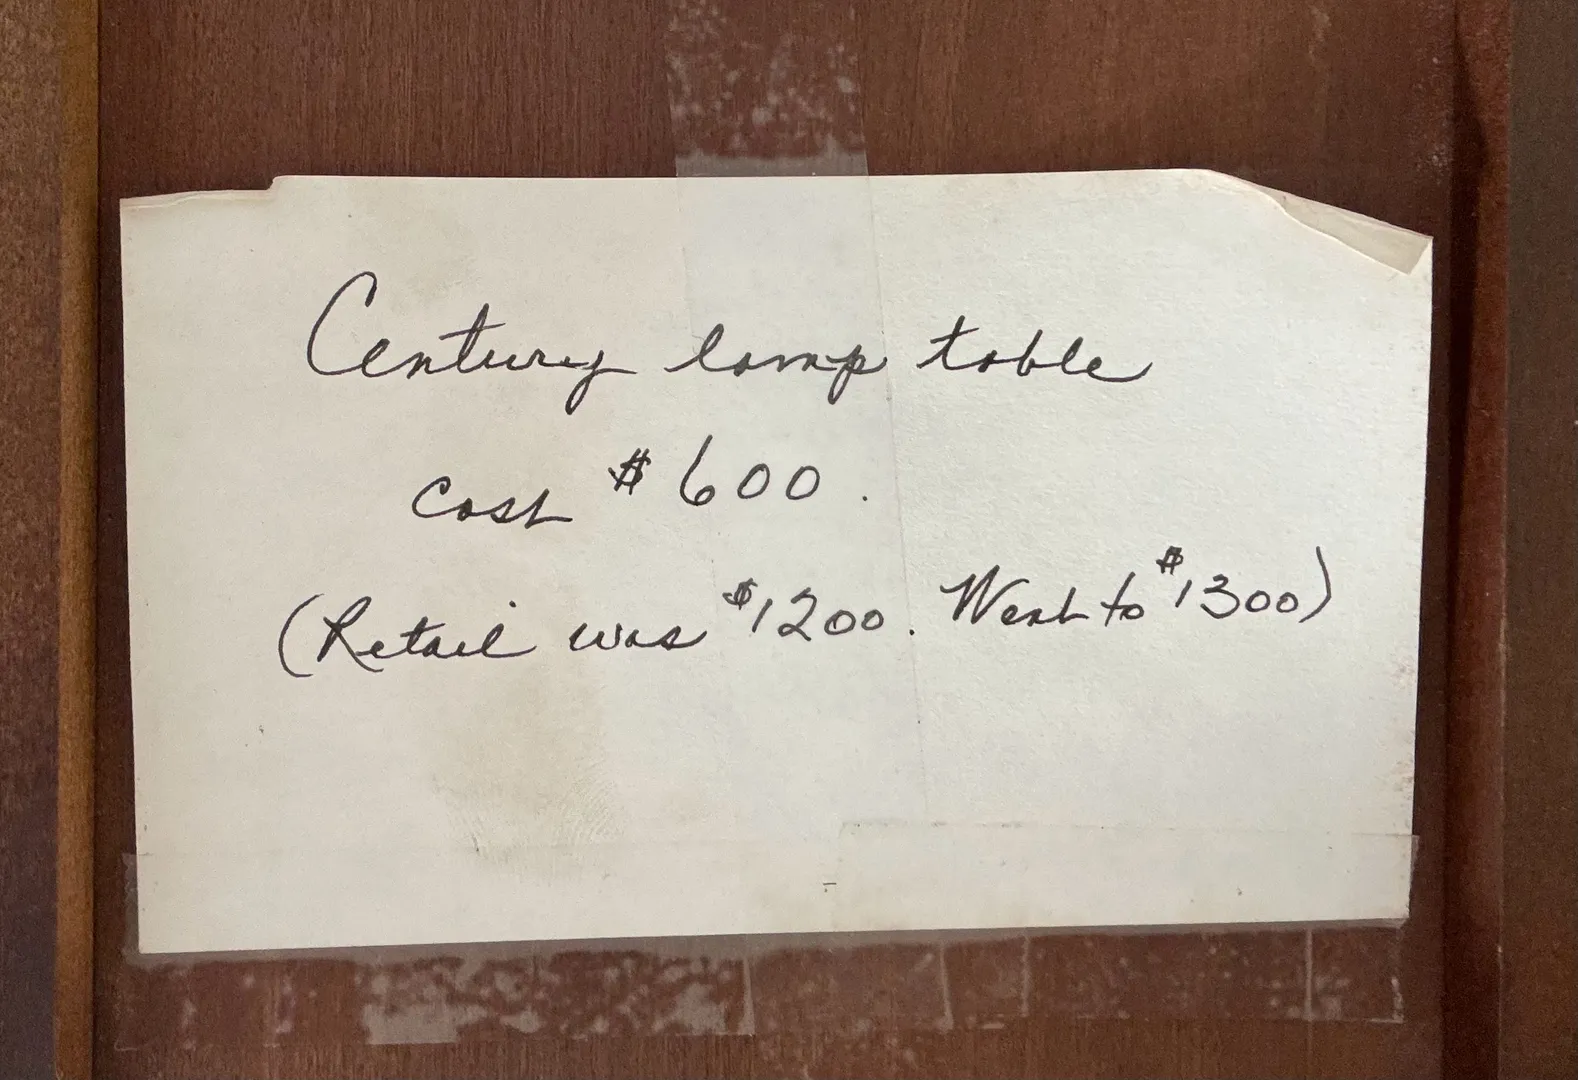 Century lamp table
cost $600.
(Retail was $1200. Went to $1300)